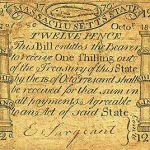 MASSACHUSETTS STATE
Octo
TWELVE PENCE.
This Bill entitles the Bearer
to receive One Shilling out
of the Treasury of this State
by the 18. of Octo and shall
be received for that sum in
all payments Agreeable
to an Act of said State.
E. Sargeant